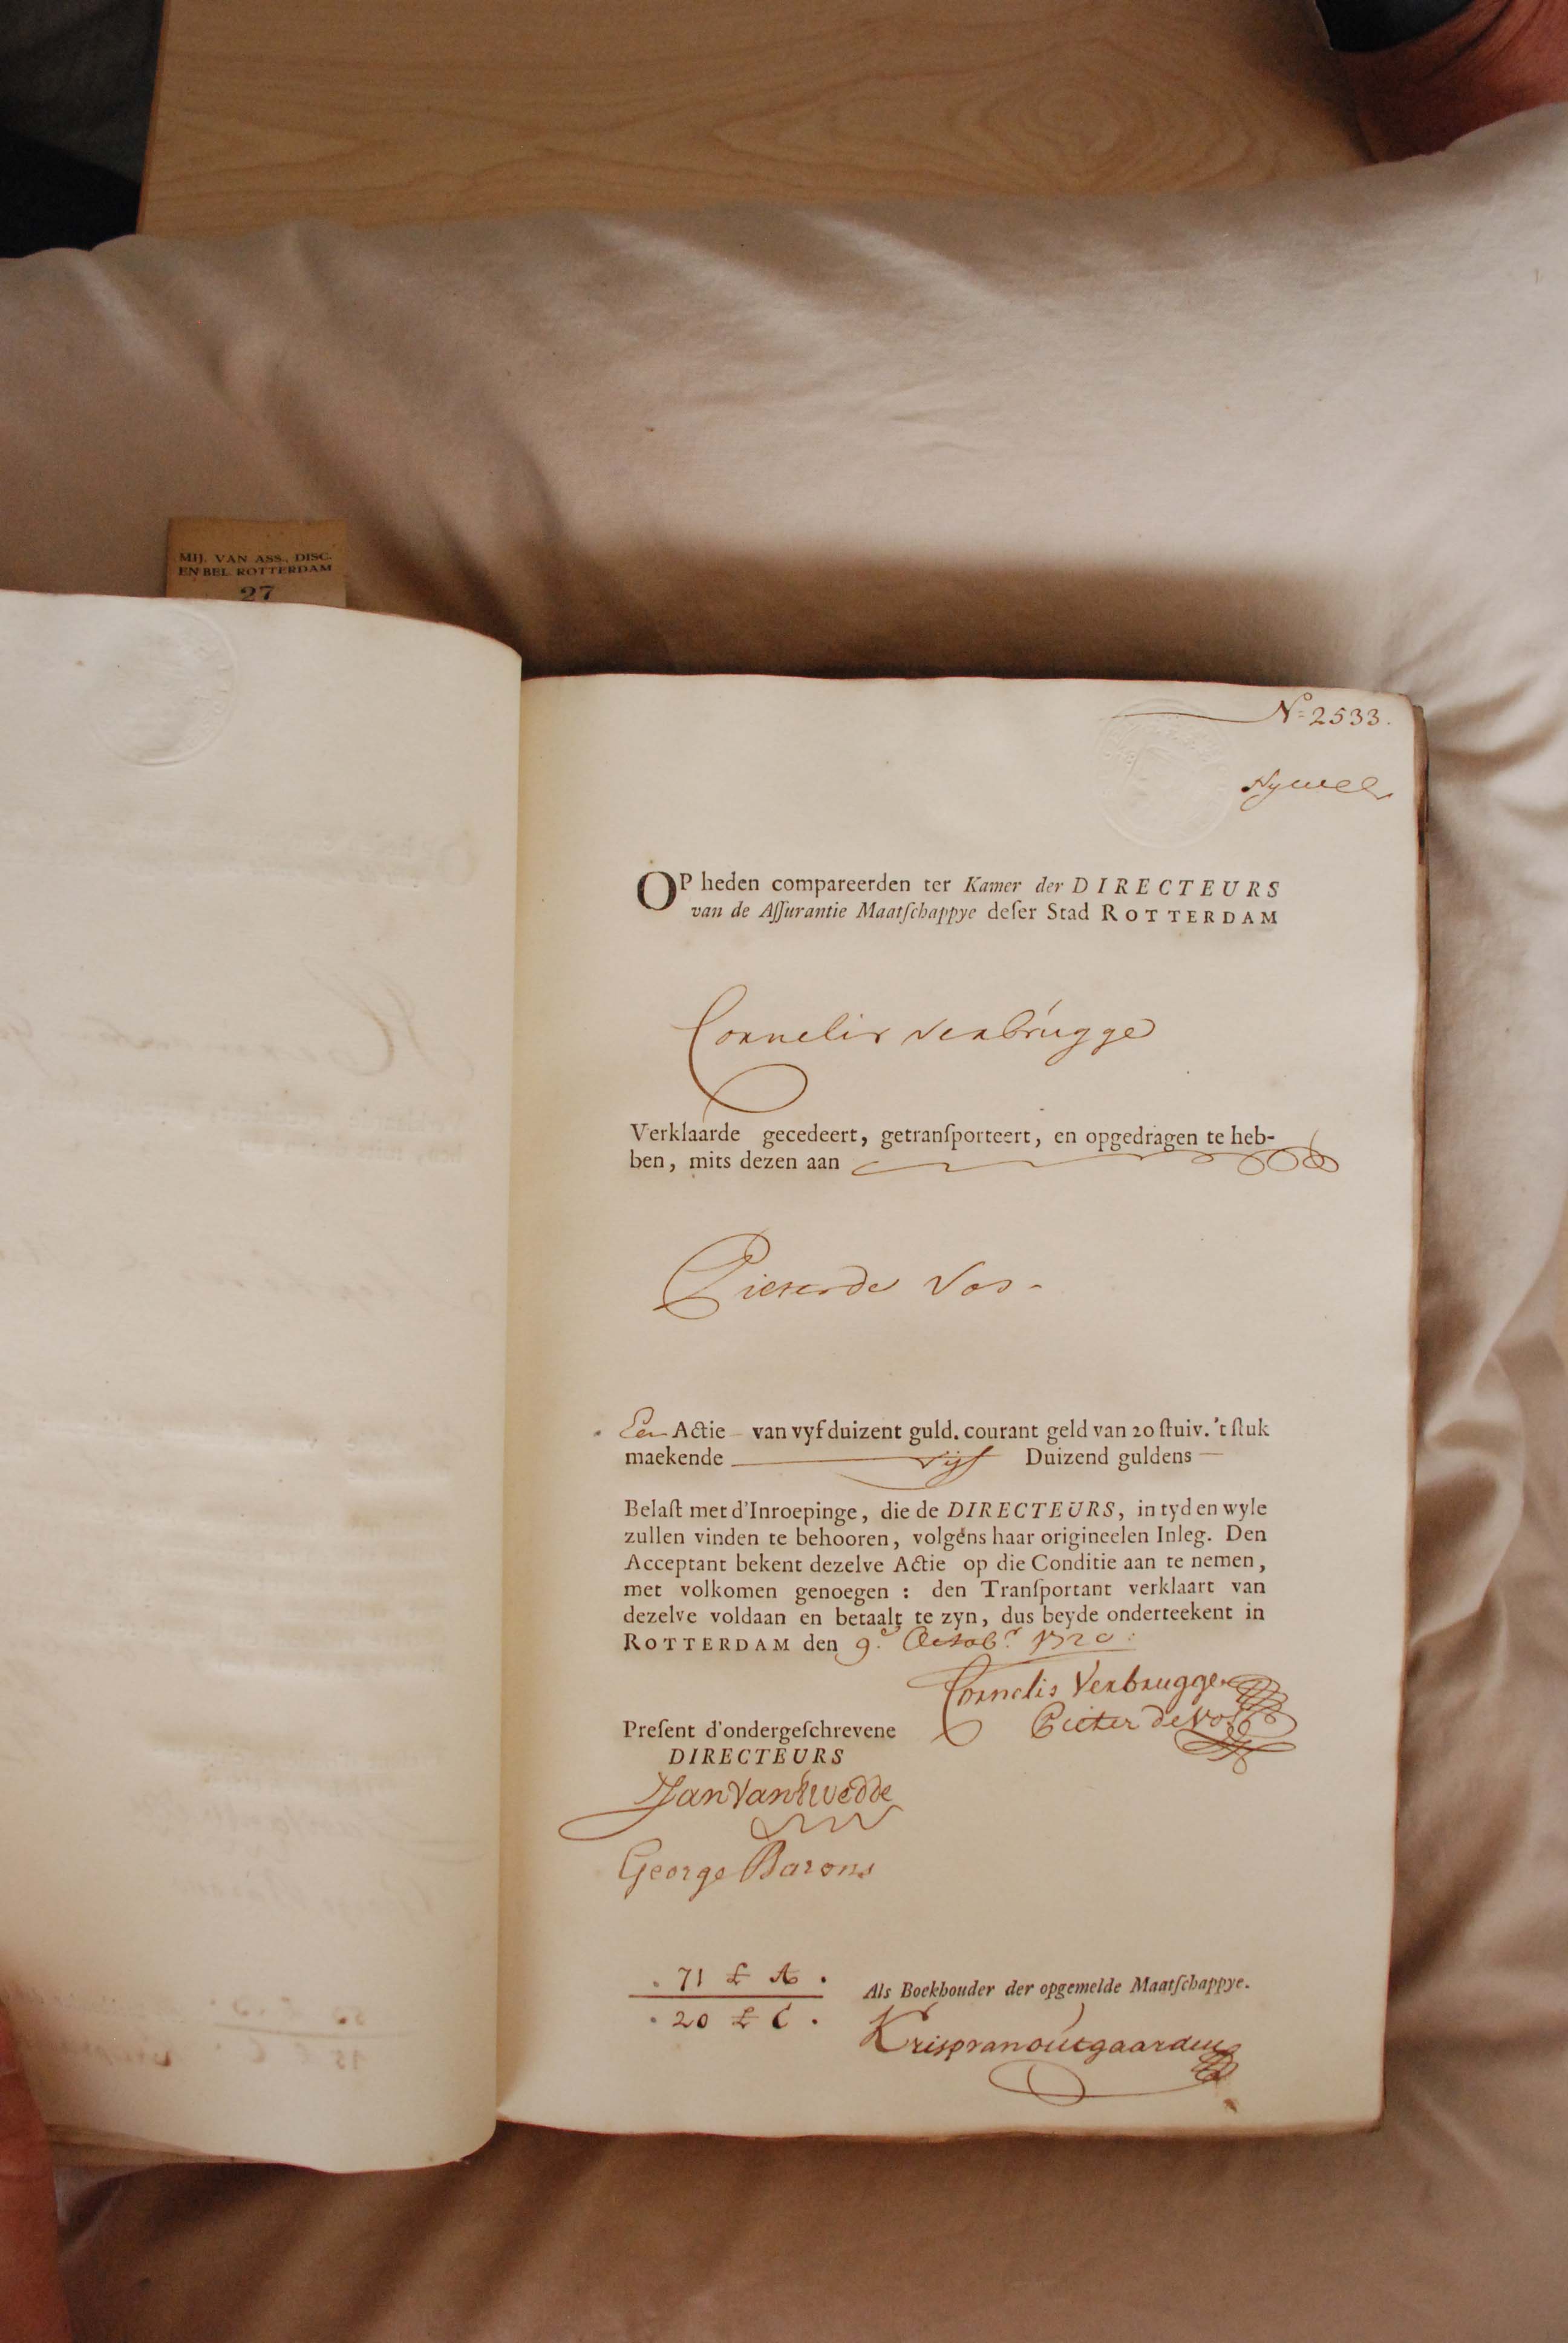 MIJ. VAN ASS., DISC.
EN BEL. ROTTERDAM
27
No 2533.
OP heden compareerden ter Kamer der DIRECTEURS
van de Aſſurantie Maatſchappye deſer Stad ROTTERDAM
Cornelis Verbrugge
Verklaarde gecedeert, getranſporteert, en opgedragen te heb-
ben, mits dezen aan
Pieter de Vos
Een Actie van vyf duizent guld. courant geld van 20 ſtuiv. 't ſtuk
maekende vijf Duizend guldens
Belaſt met d'Inroepinge, die de DIRECTEURS, in tyd en wyle
zullen vinden te behooren, volgens haar origineelen Inleg. Den
Acceptant bekent dezelve Actie op die Conditie aan te nemen,
met volkomen genoegen : den Tranſportant verklaart van
dezelve voldaan en betaalt te zyn, dus beyde onderteekent in
ROTTERDAM den 9e. Octobr. 1720
Cornelis Verbrugge
Pieter de Vos
Preſent d'ondergeſchrevene
DIRECTEURS
George Barons
71 £ A
20 £ C
Als Boekhouder der opgemelde Maatſchappye.